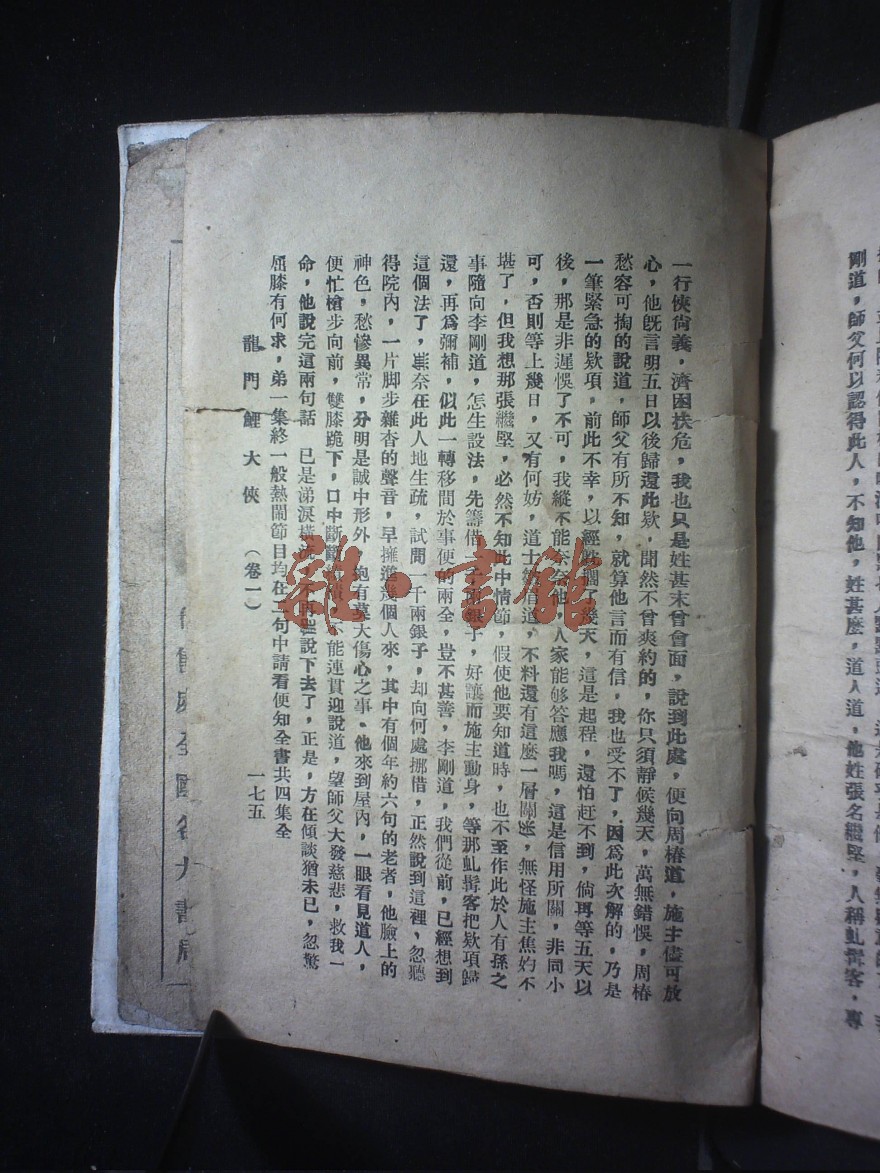 剛道，師父何以認得此人，不知他，姓甚麽，道人道，他姓張名繼堅，人稱虬髯客，專
一行俠尚義，濟困扶危，我也只是姓甚末曾會面，說到此處，便向周椿道，施主儘可放
心，他既言明五日以後歸還此欵，聞然不曾爽約的，你只須靜候幾天，萬無錯悞，周椿
愁容可掬的說道，師父有所不知，就算他言而有信，我也受不了，因爲此次解的，乃是
一筆緊急的欵項，前此不幸，以經躭擱了幾天，這是起程，還怕赶不到，倘再等五天以
後，那是非遲悞了不可，我縱不能奈他，人家能够答應我嗎，這是信用所關，非同小
可，否則等上幾日，又有何妨，道士道，不料還有這麽一層關，無怪施主焦灼不
堪了，但我想那張繼堅，必然不知此中情節，假使他要知道時，也不至作此於人有孫之
事隨向李剛道，怎生設法，先籌借一千銀子，好讓而施主動身，等那虬髯客把欵項歸
還，再爲彌補，似此一轉移間於事便前兩全，豈不甚善，李剛道，我們從前，已經想到
這個法了，無奈在此人地生疏，試問一千兩銀子，却向何處挪借，正然說到這裡，忽聽
得院內，一片脚步雜沓的聲音，早擁進幾個人來，其中有個年約六旬的老者，他臉上的
神色，愁慘異常，分明是誠中形外，抱有莫大傷心之事，他來到屋內，一眼看見道人，
便忙槍步向前，雙膝跪下，口中斷斷續續，不能連貫迎說道，望師父大發慈悲，救我一
命，他說完這兩句話 已是涕淚橫流，不再說下去了，正是，方在傾談猶未已，忽驚
屈膝有何求，弟一集終一般熱鬧節目均在二句中請看便知全書共四集全
龍門鯉大俠 （卷一） 一七五
售處全國各大書局
雜·書館